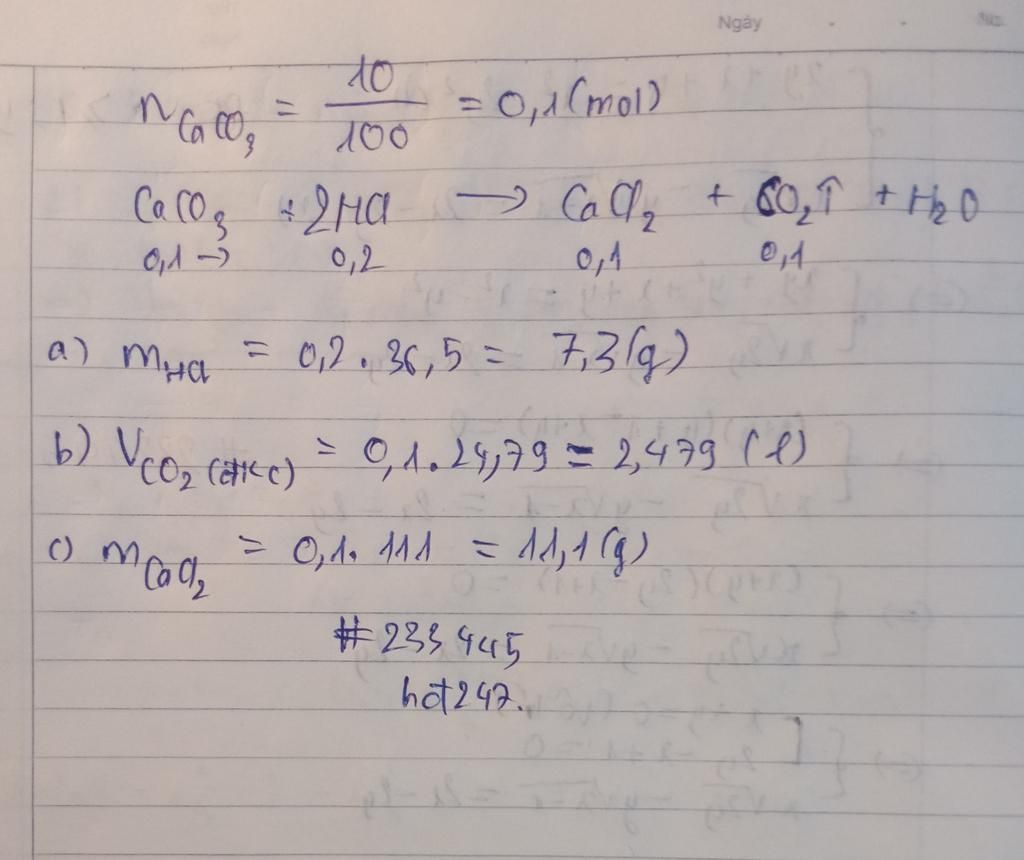 Ngày No.
nCaCO3 = 10/100 = 0,1(mol)
CaCO3 + 2HCl → CaCl2 + CO2↑ + H2O
0,1→ 0,2 0,1 0,1
a) mHCl = 0,2 . 36,5 = 7,3(g)
b) VCO2(đkc) = 0,1. 24,79 = 2,479 (l)
c) mCaCl2 = 0,1. 111 = 11,1(g)
#233445
hot247.